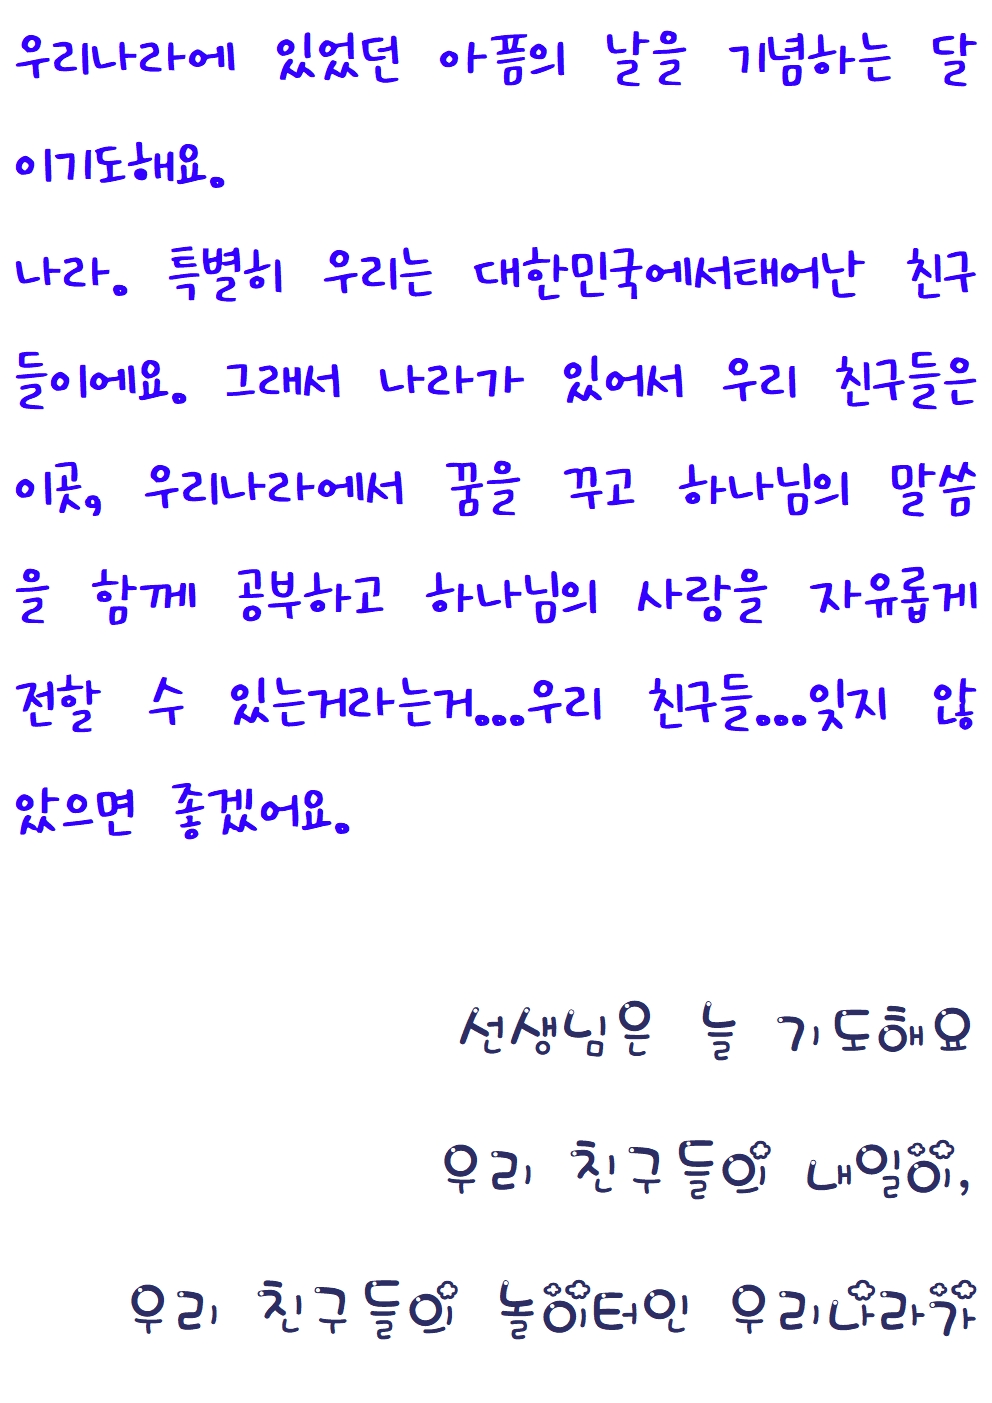 우리나라에 있었던 아픔의 날을 기념하는 달
이기도해요.
나라. 특별히 우리는 대한민국에서태어난 친구
들이에요. 그래서 나라가 있어서 우리 친구들은
이곳, 우리나라에서 꿈을 꾸고 하나님의 말씀
을 함께 공부하고 하나님의 사랑을 자유롭게
전할 수 있는거라는거...우리 친구들...잊지 않
았으면 좋겠어요.
선생님은 늘 기도해요
우리 친구들의 내일이,
우리 친구들의 놀이터인 우리나라가